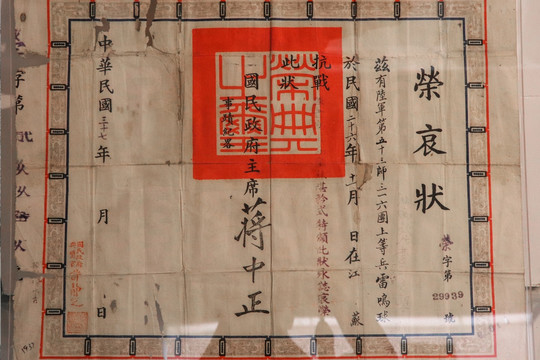 榮哀狀
榮字第29939號
茲有陸軍第五十三師三一六團上等兵雷鳴球
於民國二十六年十一月 日在江蘇
抗戰
特頒此狀永誌哀榮
此狀
國民政府主席蔣中正
事績紀畧
中華民國三十七年 月 日
字第